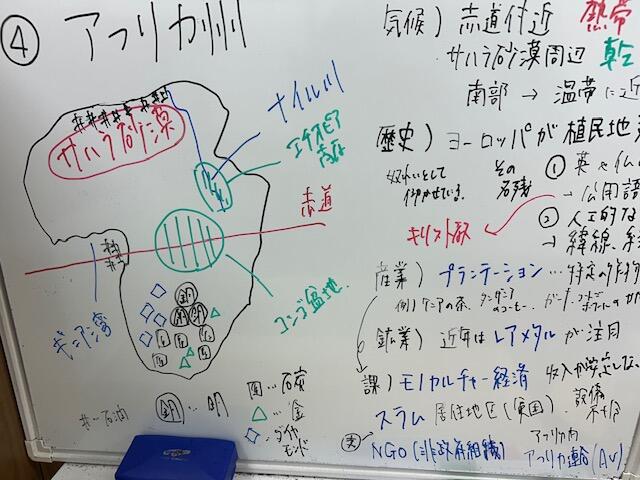 ④ アフリカ州
サハラ砂漠
ナイル川
エチオピア
高原
赤道
コンゴ盆地
ギニア湾
銅
銅 銅
井…石油
銅…銅
石炭
△…金
◇…ダイヤ
モンド
気候) 赤道付近 熱帯
サハラ砂漠周辺 乾
南部 → 温帯に近
歴史) ヨーロッパが植民地
奴れいとして
働かせている。
その
名残
① 英や仏
→ 公用語
キリスト教
② 人工的な
→ 緯線、経
産業) プランテーション…特定の作物
例) ケニアの茶、タンザニアのコーヒー
鉱業) 近年はレアメタルが注目
課) モノカルチャー経済 収入が安定しない
スラム 居住地区(貧困)、設備
不十分
NGO (非政府組織)
アフリカ内
アフリカ連合(AU)